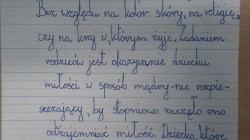 Bez względu na kolor skóry, na religię
czy na kraj w którym żyje. Zadaniem
rodziców jest okazywanie dziecku
miłości w sposób mądry-nie rozpie-
szczający, by stopniowo zaczęło ono
odwzajemniać miłość. Dziecko, które